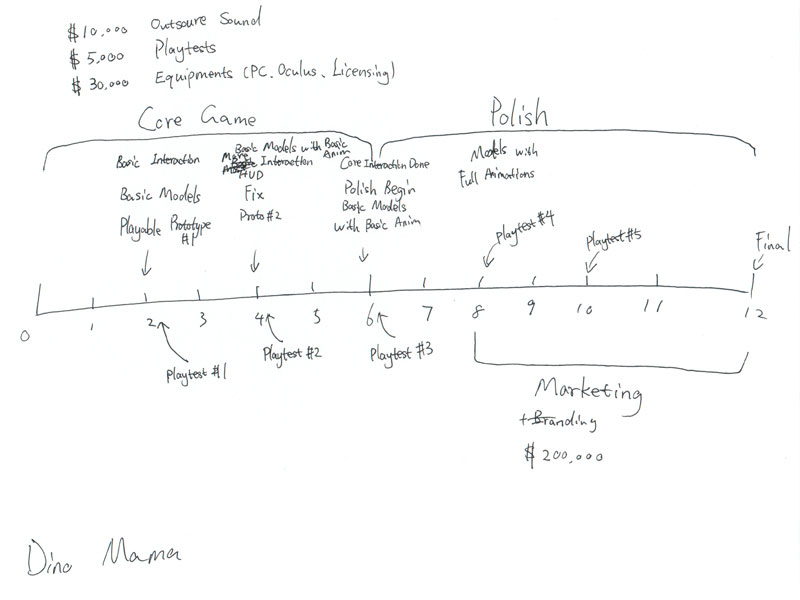 $10,000 Outsoure Sound
$5,000 Playtests
$30,000 Equipments (PC, Oculus, Licensing)
Core Game
Polish
Basic Interaction
Basic Models
Playable Prototype
#1
Basic Models with Basic
Anim
More Interaction
HUD
Fix
Proto #2
Core Interaction Done
Polish Begin
Basic Models
with Basic Anim
Models with
Full Animations
Playtest #4
Playtest #5
Final
0 1 2 3 4 5 6 7 8 9 10 11 12
Playtest #1
Playtest #2
Playtest #3
Marketing
+ Branding
$200,000
Dino Mama